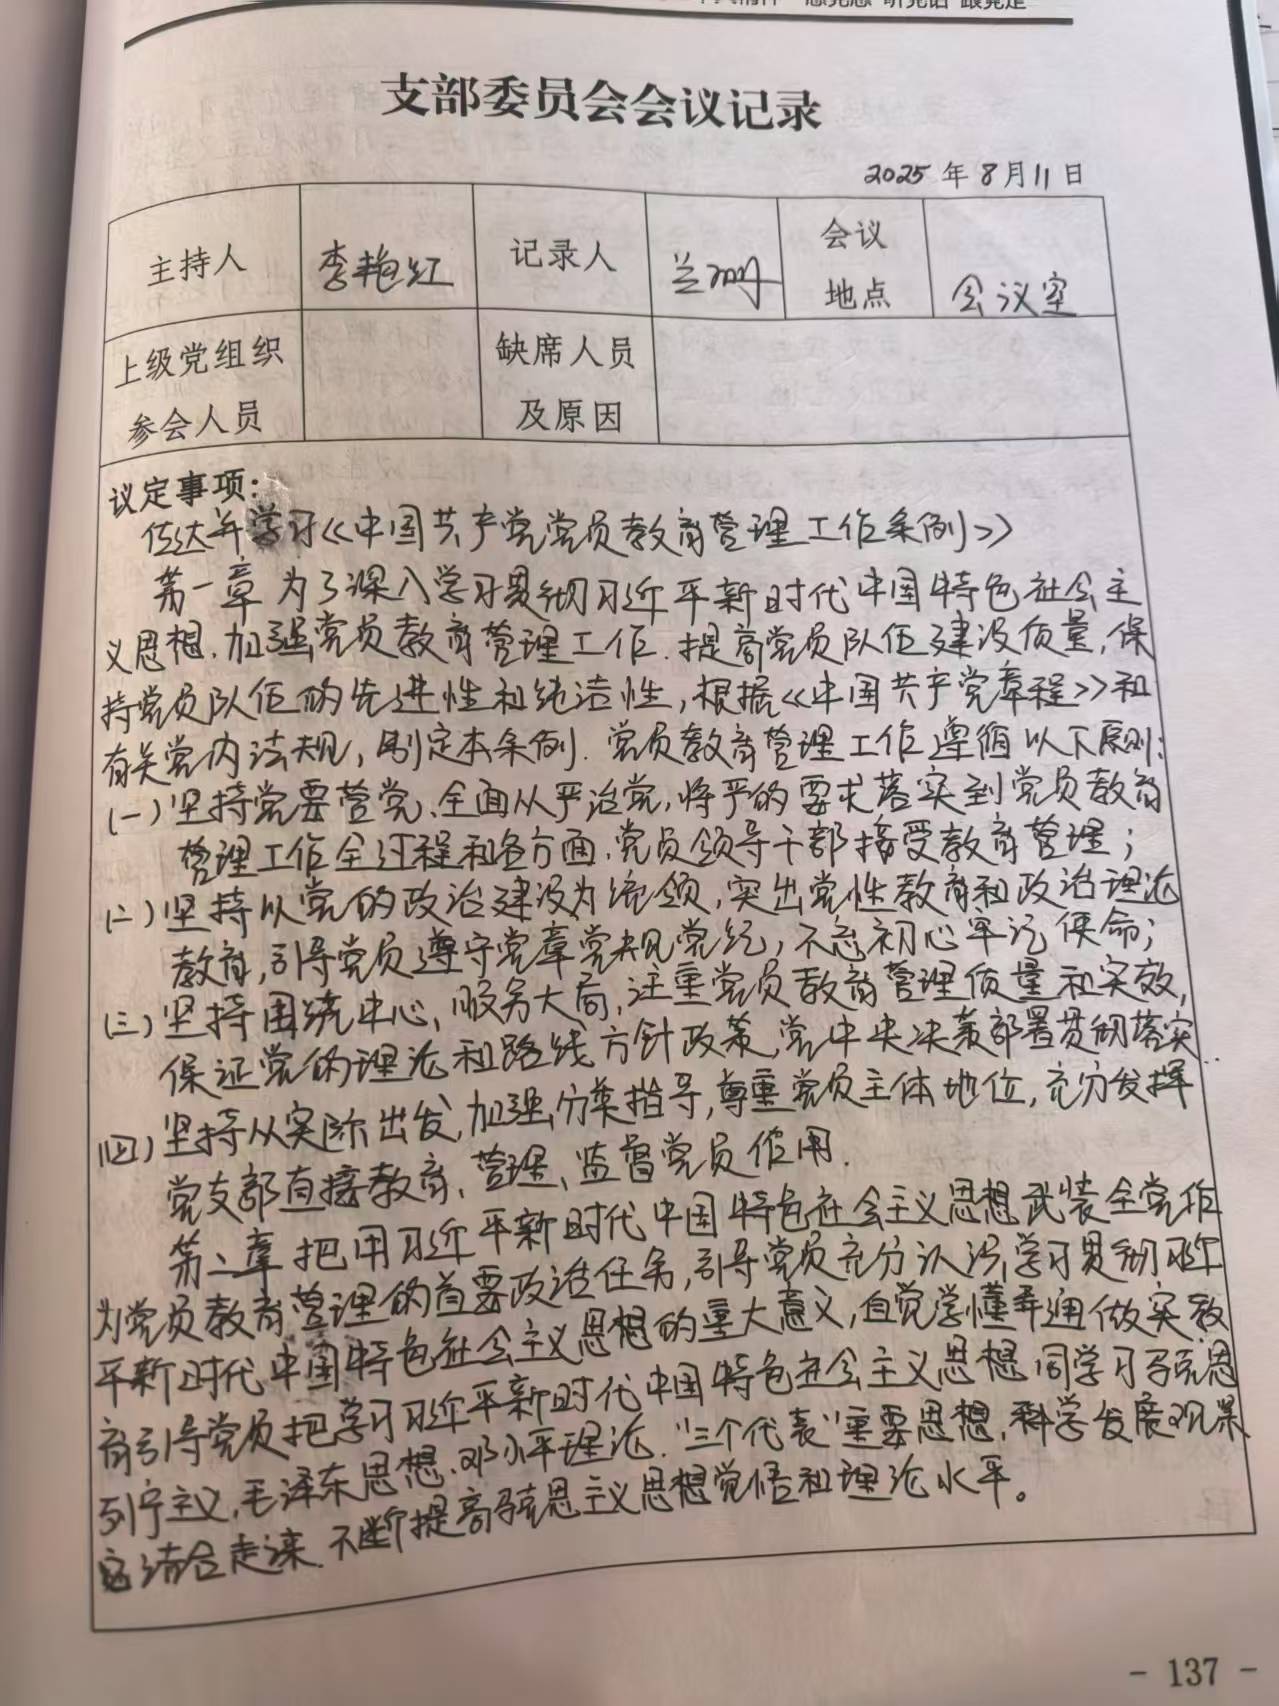 感党恩 听党话 跟党走
支部委员会会议记录
2025年8月11日
主持人 李艳红 记录人 会议地点 会议室
上级党组织参会人员 缺席人员及原因
议定事项:
传达并学习《中国共产党党员教育管理工作条例》
第一章 为了深入学习贯彻习近平新时代中国特色社会主
义思想,加强党员教育管理工作,提高党员队伍建设质量,保
持党员队伍的先进性和纯洁性,根据《中国共产党章程》和
有关党内法规,制定本条例.党员教育管理工作遵循以下原则:
(一)坚持党要管党、全面从严治党,将严的要求落实到党员教育
管理工作全过程和各方面,党员领导干部接受教育管理;
(二)坚持以党的政治建设为统领,突出党性教育和政治理论
教育,引导党员遵守党章党规党纪,不忘初心牢记使命;
(三)坚持围绕中心,服务大局,注重党员教育管理质量和实效,
保证党的理论和路线方针政策,党中央决策部署贯彻落实..
(四)坚持从实际出发,加强分类指导,尊重党员主体地位,充分发挥
党支部直接教育、管理、监督党员作用.
第二章 把用习近平新时代中国特色社会主义思想武装全党作
为党员教育管理的首要政治任务,引导党员充分认识学习贯彻习近
平新时代中国特色社会主义思想的重大意义,自觉学懂弄通做实教
育引导党员把学习习近平新时代中国特色社会主义思想同学习马克思
列宁主义,毛泽东思想、邓小平理论、"三个代表"重要思想,科学发展观
结合起来,不断提高马克思主义思想觉悟和理论水平。
- 137 -